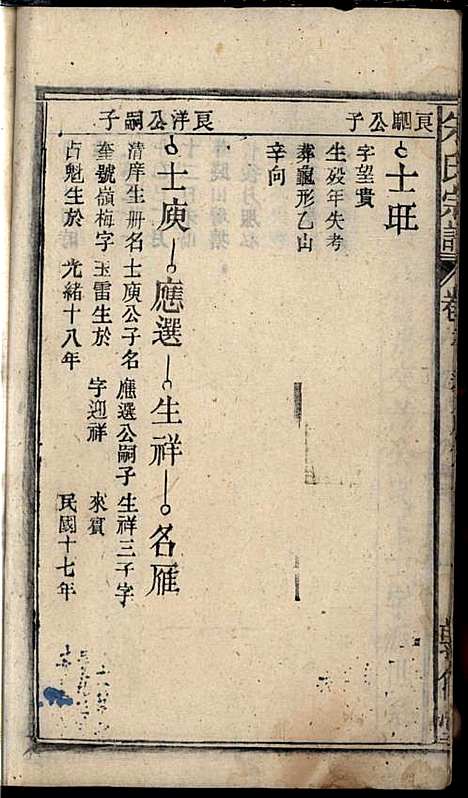 宋氏宗譜
良驷公子
士班
字望貴
生殁年失考
葬龜形乙山
辛向
良洋公嗣子
士庚
應選
生祥
名雁
清庠生册名
士庚公子名
應選公嗣子
生祥三子字
奎號嶺梅字
玉雷生於
字迎祥
來賓
占魁生於
光緒十八年
民國十七年